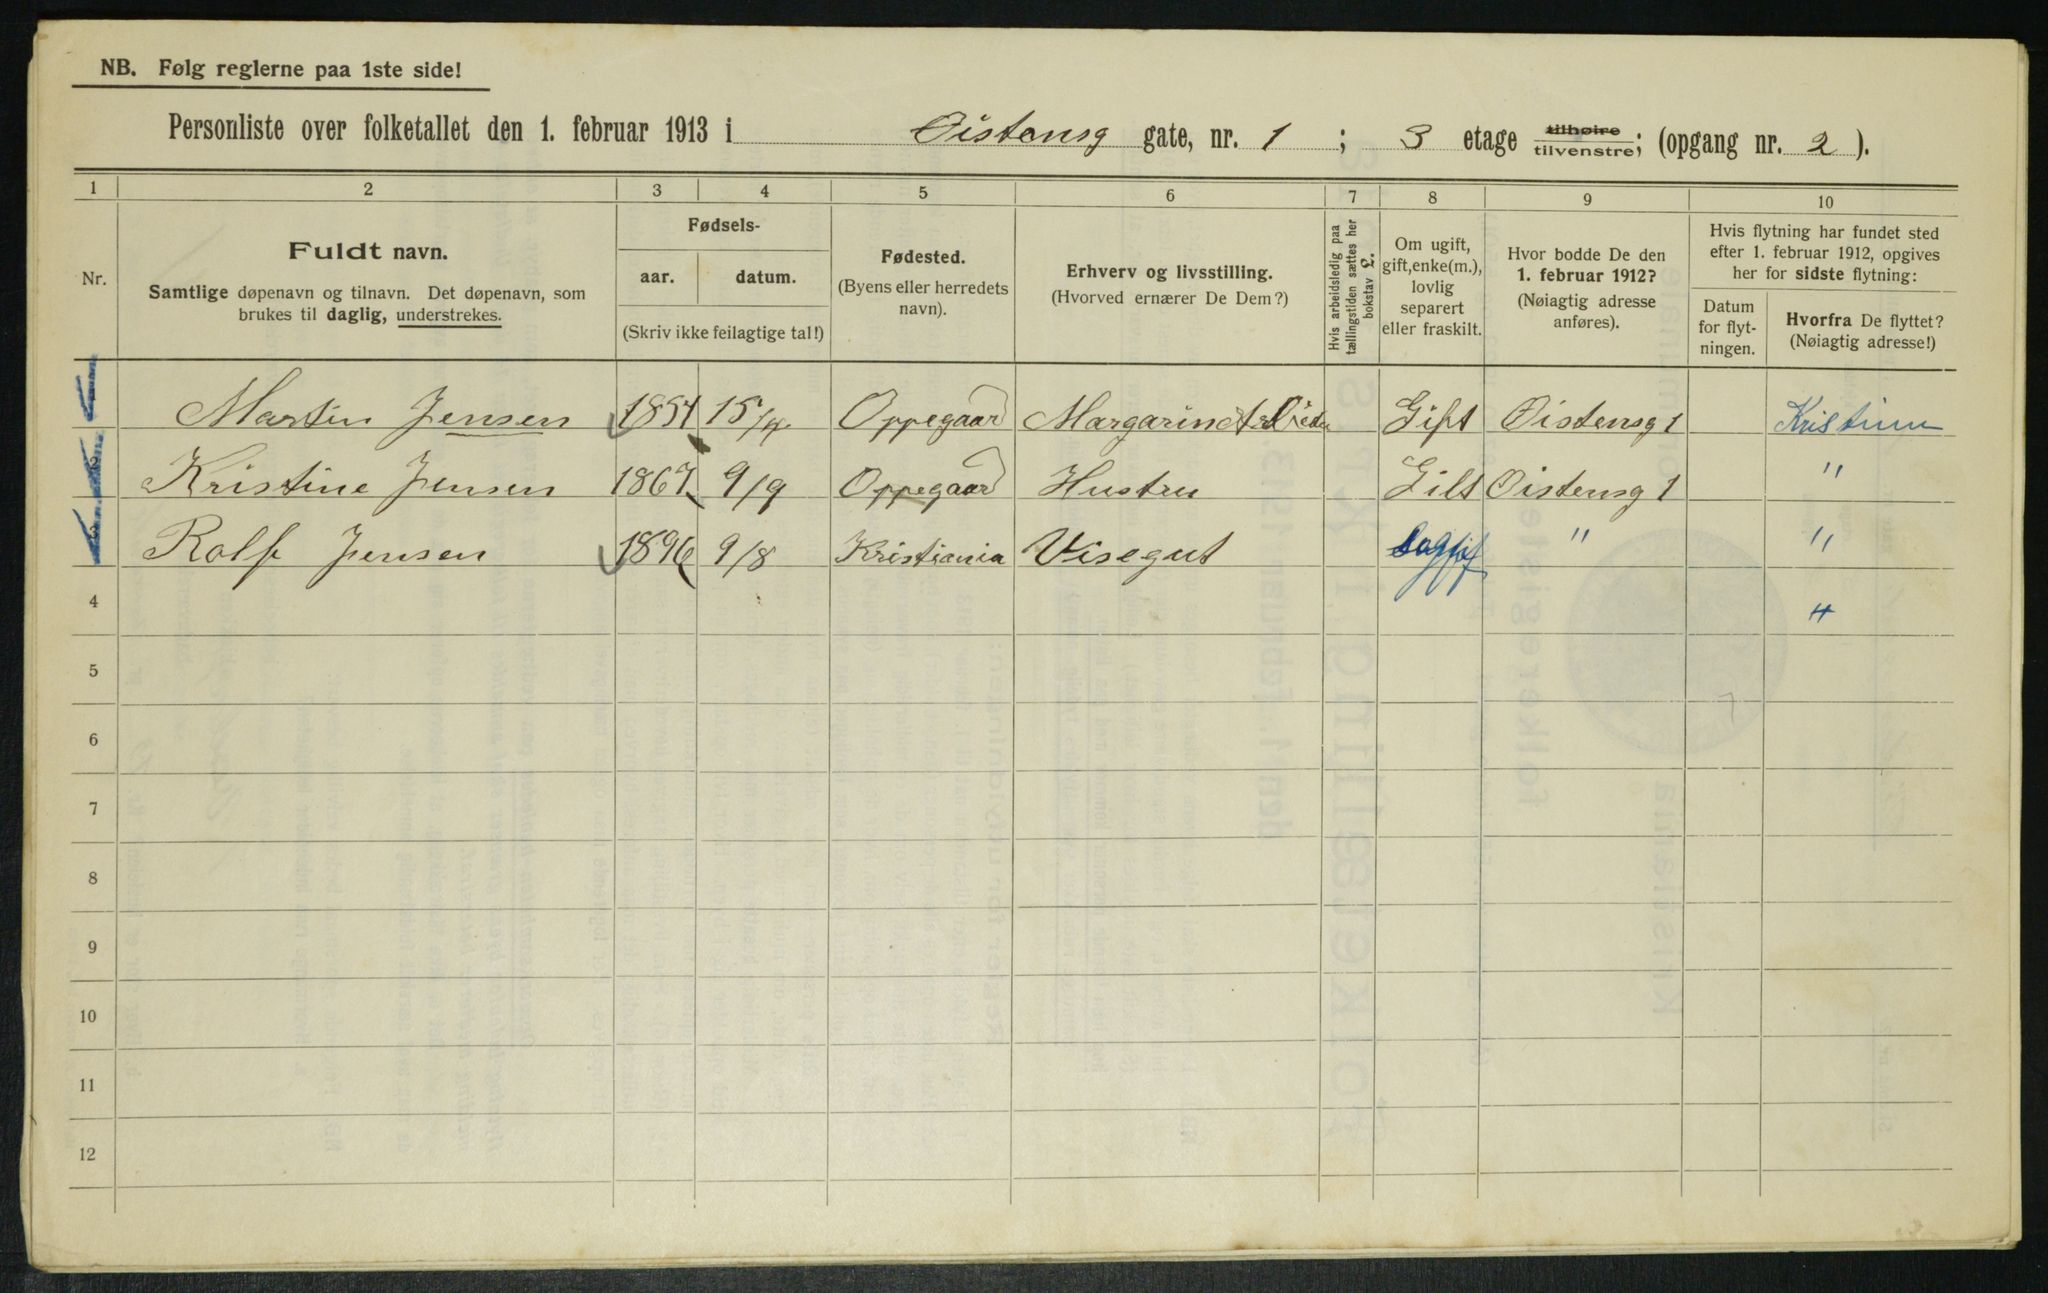 NB. Følg reglerne paa 1ste side!
Personliste over folketallet den 1. februar 1913 i Øistensg gate, nr. 1 ; 3 etage tilhøire tilvenstre; (opgang nr. 2 ).
1 2 3 4 5 6 7 8 9 10
Nr.
Fuldt navn.
Samtlige døpenavn og tilnavn. Det døpenavn, som
brukes til daglig, understrekes.
Fødsels-
aar. datum.
(Skriv ikke feilagtige tal!)
Fødested.
(Byens eller herredets
navn).
Erhverv og livsstilling.
(Hvorved ernærer De Dem?)
Hvis arbeidsledig paa
tællingstiden sættes her
bokstav L.
Om ugift,
gift, enke(m.),
lovlig
separert
eller fraskilt.
Hvor bodde De den
1. februar 1912?
(Nøiagtig adresse
anføres).
Hvis flytning har fundet sted
efter 1. februar 1912, opgives
her for sidste flytning:
Datum
for flyt-
ningen.
Hvorfra De flyttet?
(Nøiagtig adresse!)
Martin Jensen 1854 15/4 Oppegaar Gift Øistensg 1
2 Kristine Jensen 1867 9/9 Oppegaar Hustru Gift Øistensg 1 "
3 Rolf Jensen 1896 9/8 Kristiania Visegut " "
4 "
5
6
7
8
9
10
11
12